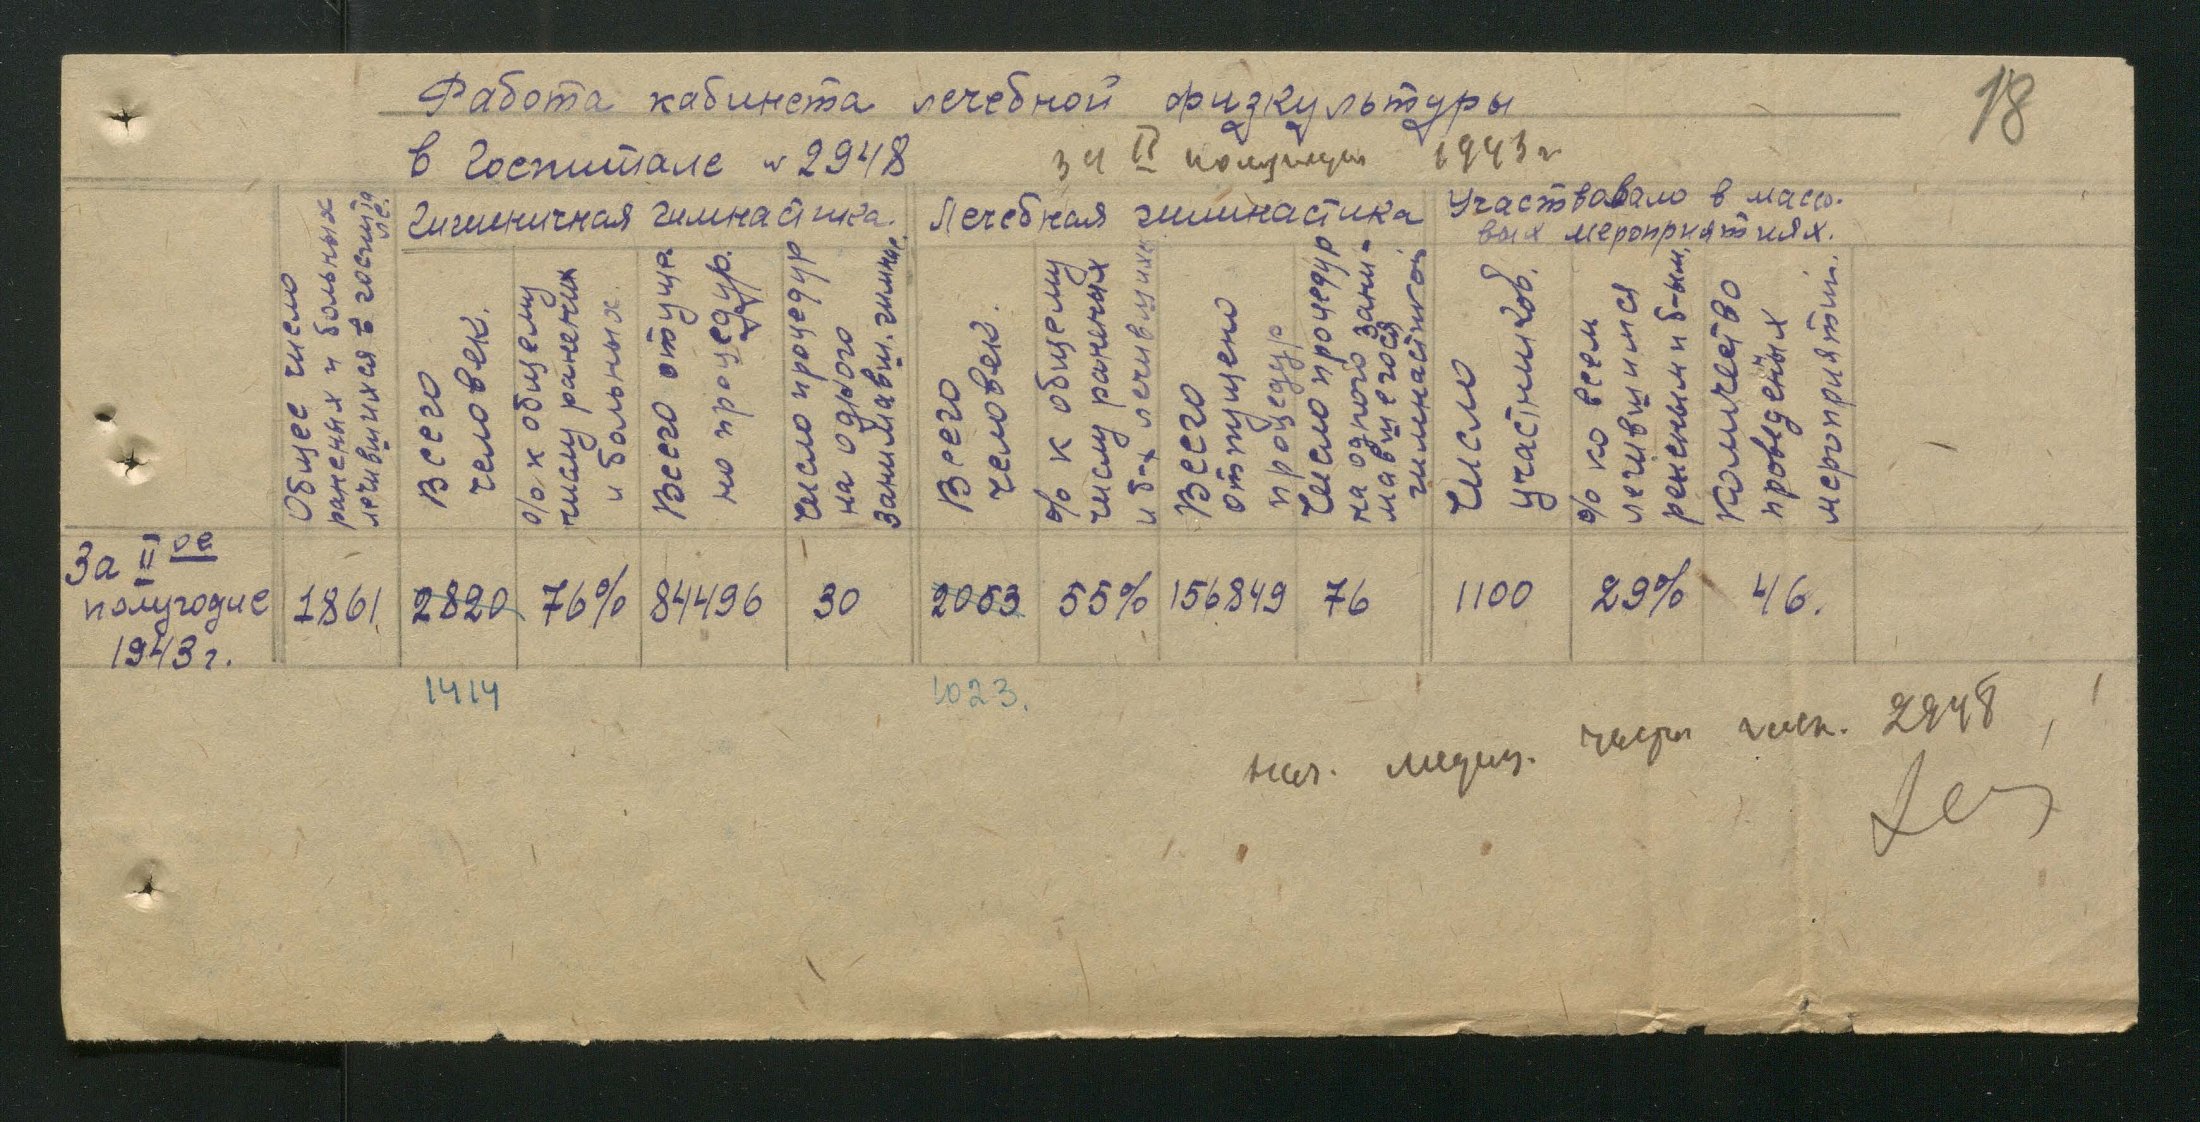 18
Работа кабинета лечебной физкультуры
в Госпитале № 2948 за II полугодие 1943 г
Общее число
раненых и больных
лечившихся в госпита
ле.
Гигиеничная гимнастика.
Всего
человек.
% к общему
числу раненных
и больных.
Всего отпуще
но процедур.
Число процедур
на одного
занимавш. гимнас.
Лечебная гимнастика
Всего
человек.
% к общему
числу раненых
и б-х лечившихся
Всего
отпущено
процедур
Число процедур
на одного зани-
мавшегося
гимнастикой
Участвовало в массо-
вых мероприятиях.
Число
участников.
% ко всем
лечившимся
раненым и б-ым.
Количество
проведеных
мероприятий.
За II ое
полугодие
1943 г.
1861 2820 76% 84496 30 2053 55% 156849 76 1100 29% 46.
1414 1023.
нач. медиц. части госп. 2948